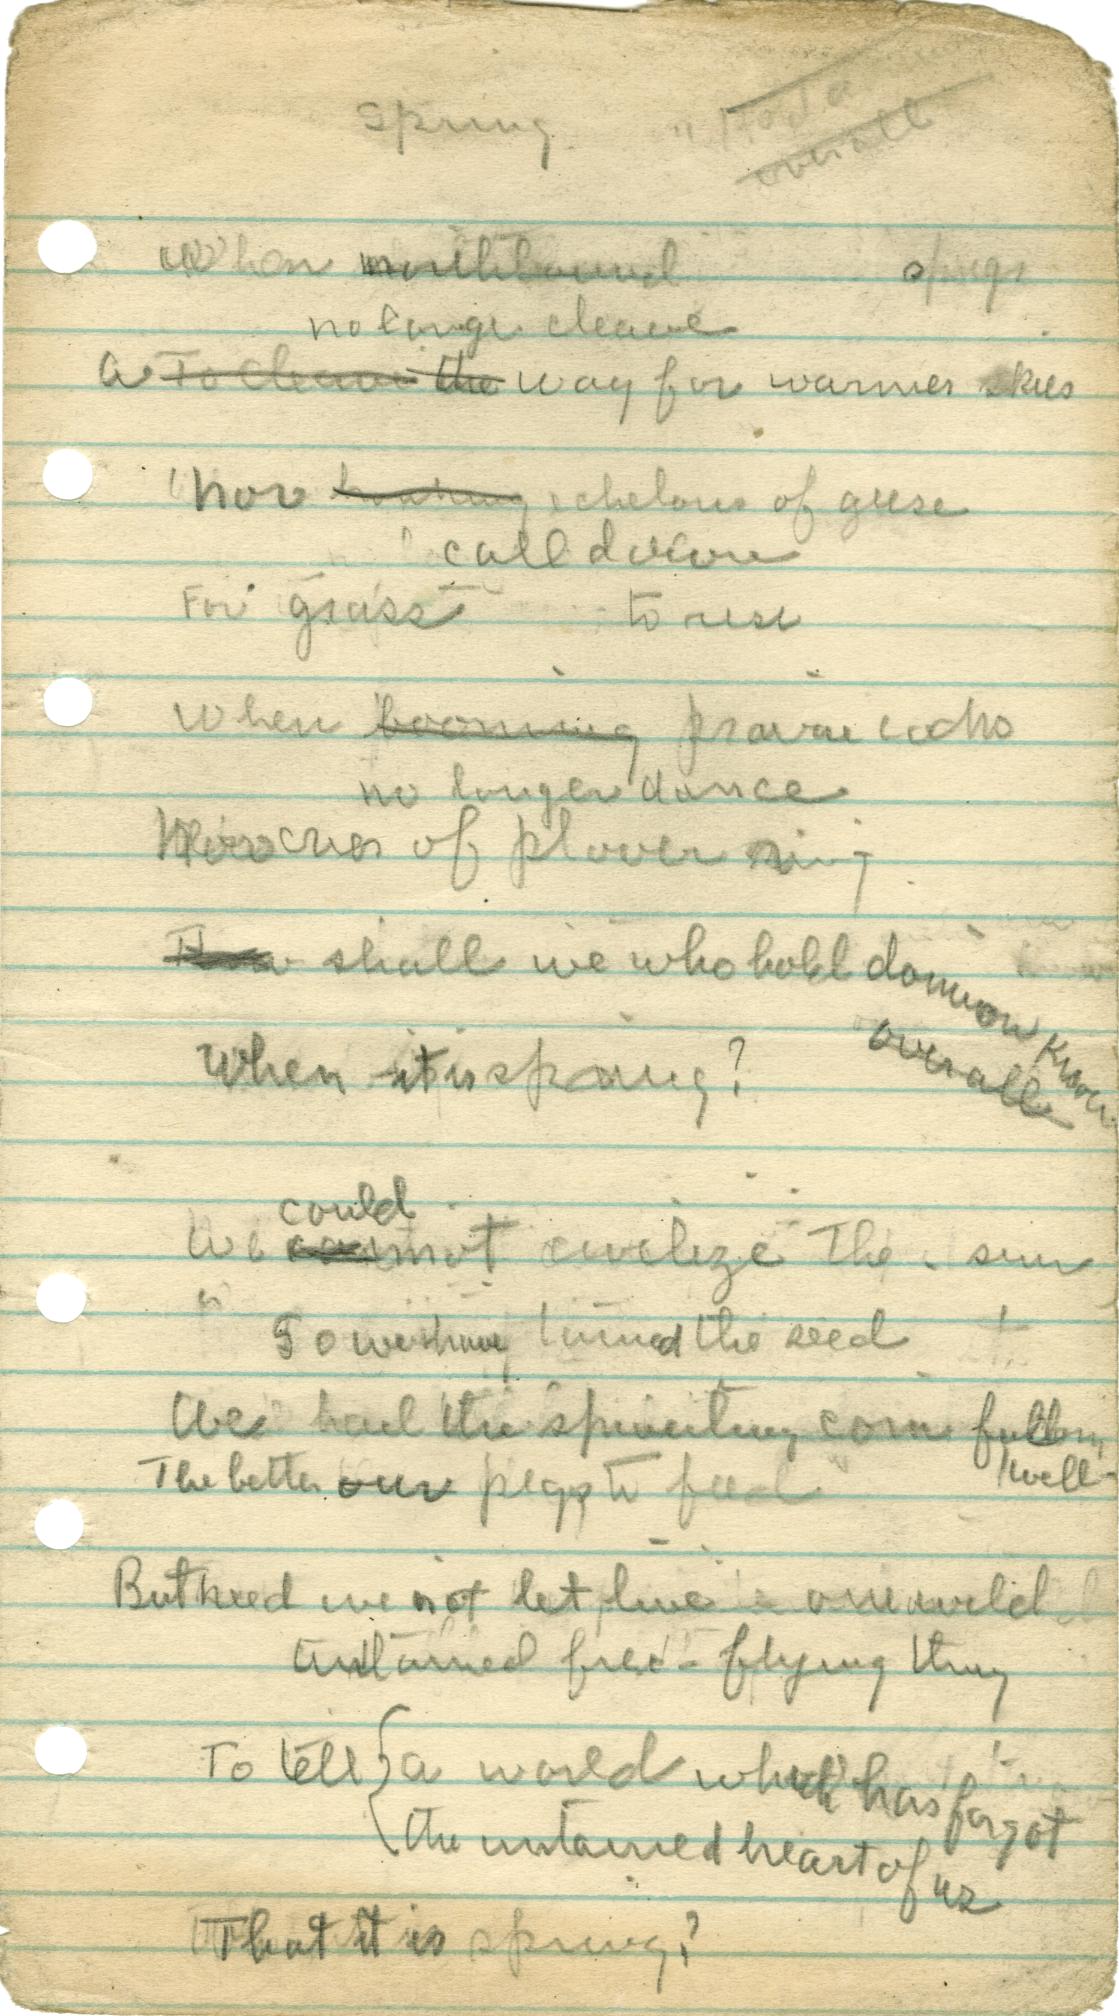 Spring
over all
When northbound
no longer cleave
A To cleave the way for warmer skies
Nor honking echelons of geese
call down
For grass to rise
When booming prairie cocks
no longer dance
Nor cries of plover ring
How shall we who hold dominion know
over all
When it is spring?
could
We cannot civilize the sun
So we have tamed the seed
We had the sprouting corn
The better our pigs to feed
But need we not let live one wild
untamed free-flying thing
To tell { a world which has forgot
the untamed heart of us
That it is spring?